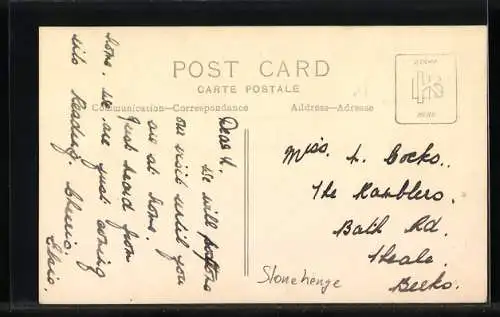 POST CARD
CARTE POSTALE
Communication—Correspondance
Address—Adresse
STAMP
HERE
Dear L.
We will postpone
our visit until you
are at home.
Just heard from
home. We are just coming
into Reading. Cheerio,
Elsie.
Miss. L. Cocks.
The Ramblers.
Bath Rd.
Theale.
Berks.
Stonehenge